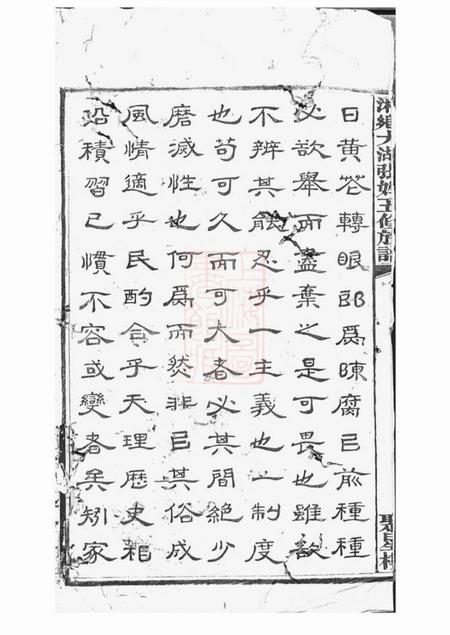 日黃花轉眼即爲陳腐已前種種
必欲舉而盡棄之是可畏也雖欲
不辨其能忍乎一主義也一制度
也苟可久而可大者必其間絕少
磨滅性也何爲而然非已其俗成
風情適乎民酌合乎天理歷史相
沿積習已慣不容或變者矣矧家
湘鄉大湖張姓五修族譜